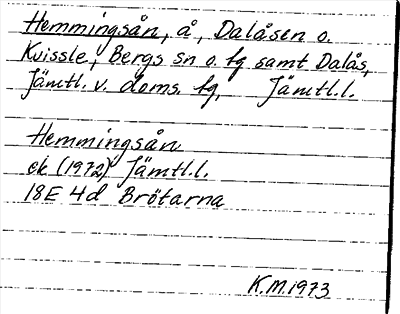 Hemmingsån, å, Dalåsen o.
Kvissle, Bergs sn o. fg samt Dalås,
Jämtl. v. doms. fg, Jämtl.l.
Hemmingsån
ek (1972) Jämtl.l.
18E 4d Brötarna
K.M.1973